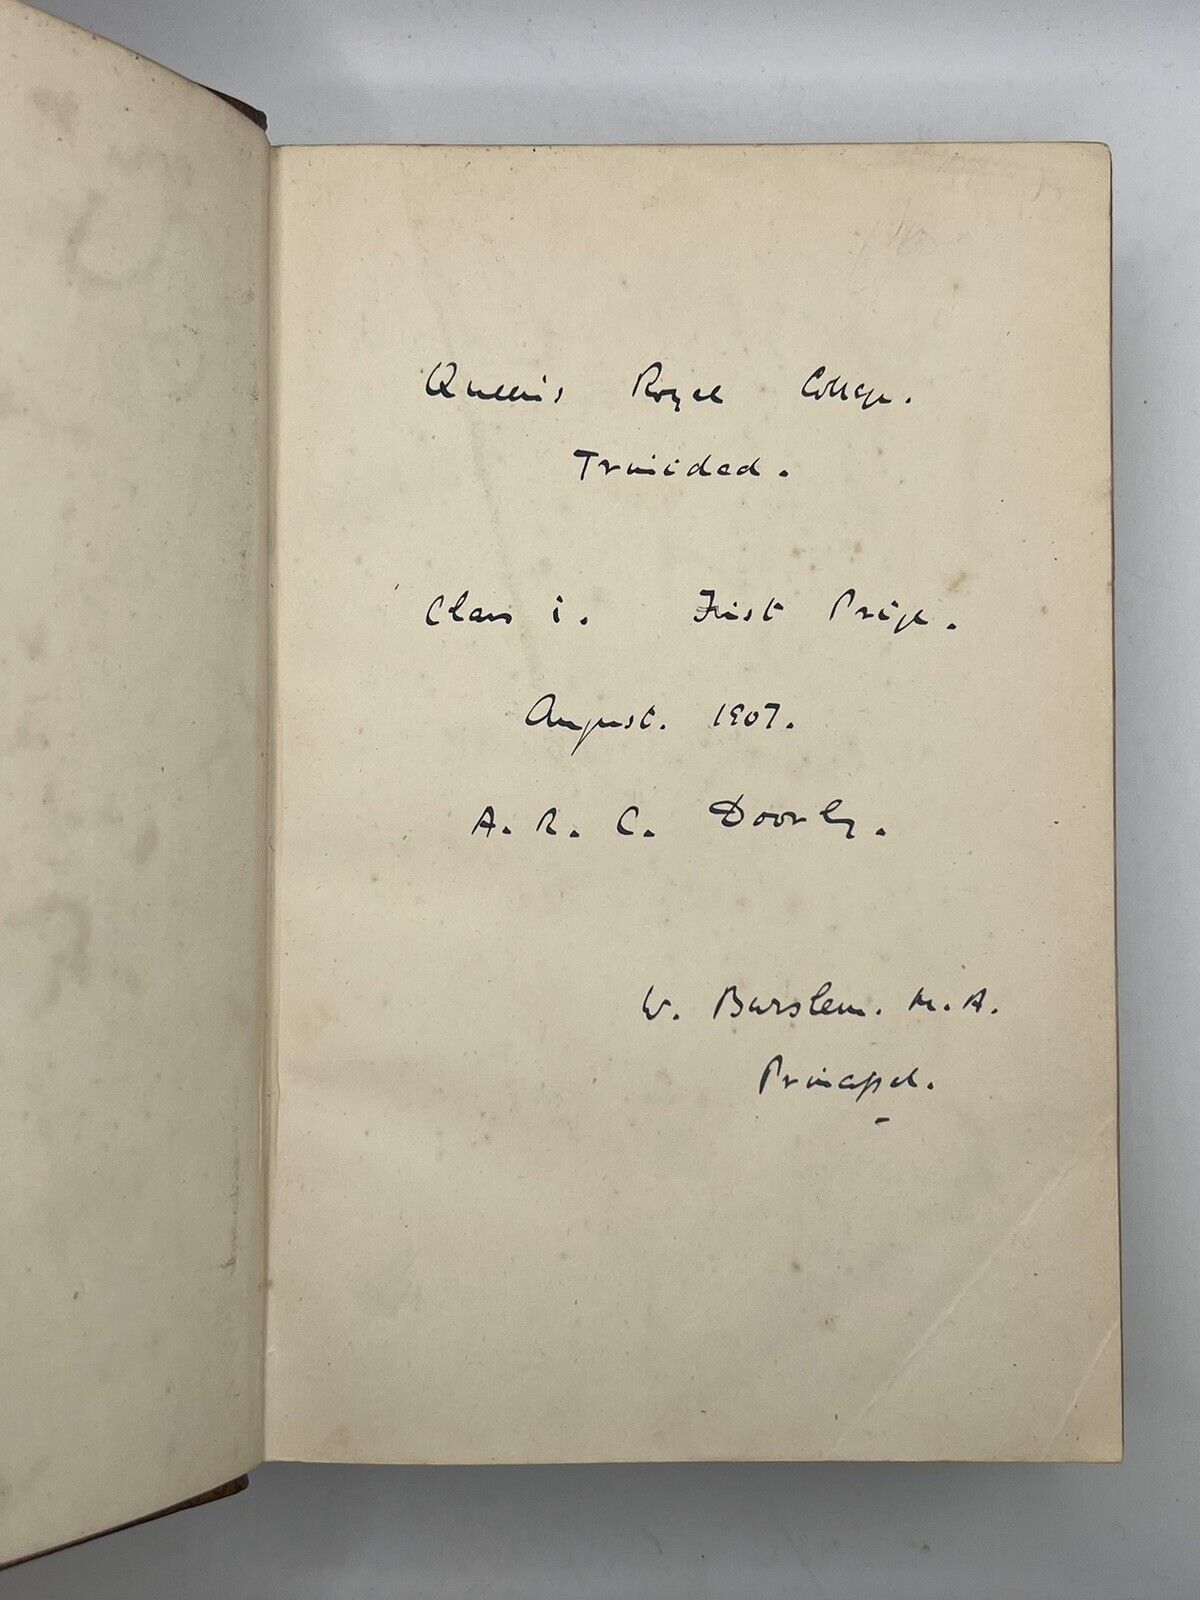 Queen's Royal College.
Trinidad.
Class i. First Prize.
August. 1907.
A. R. C. Doorly.
W. Burslem. M.A.
Principal.